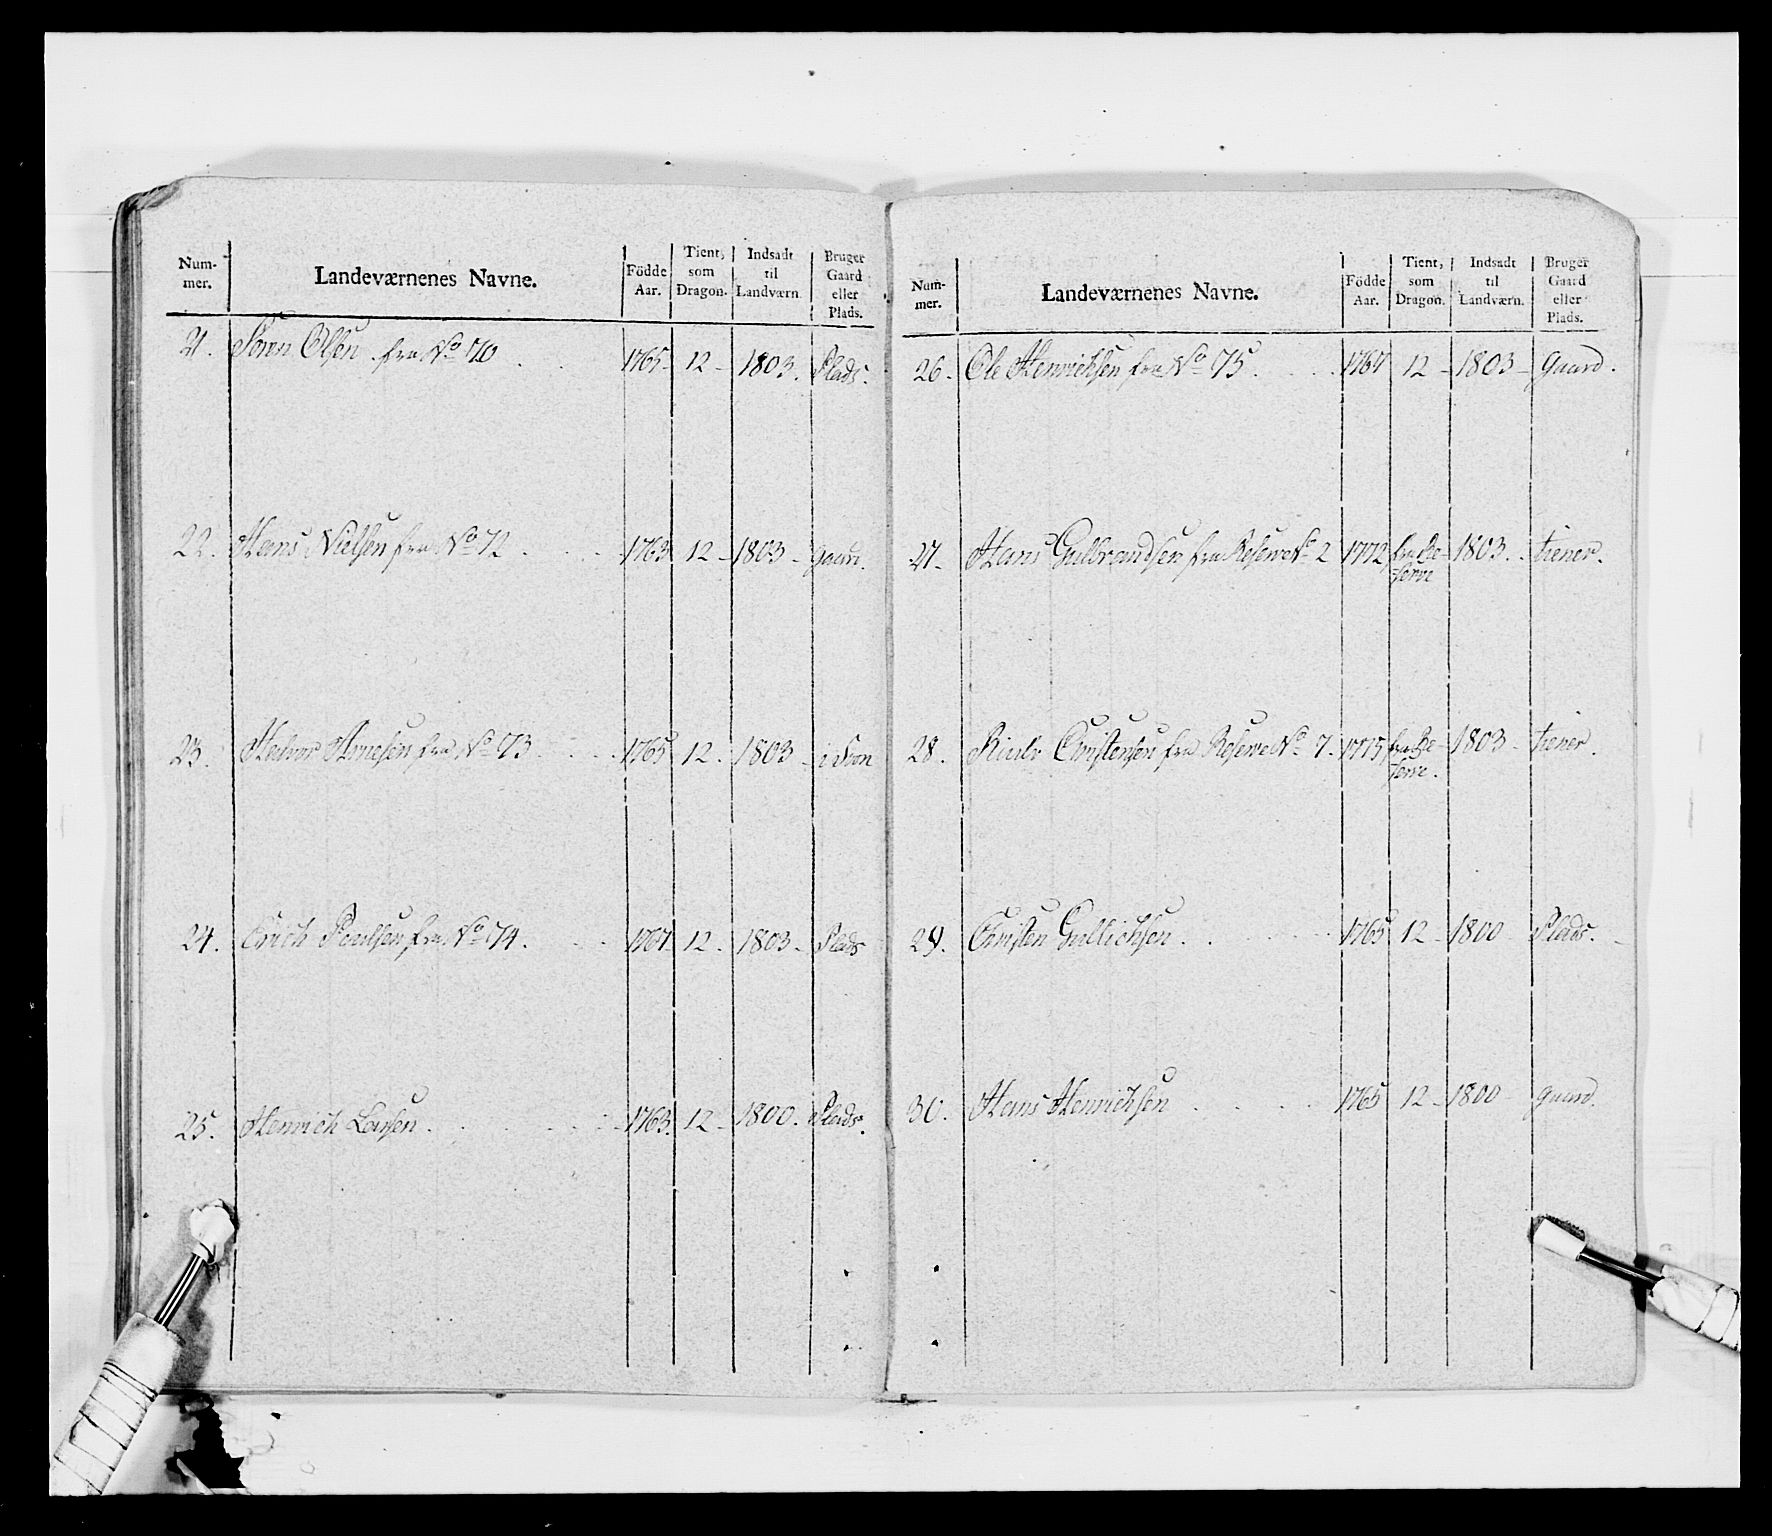 Num-mer. Landeværnenes Navne. Födde Aar. Tient, som Dragon. Indsadt til Landværn. Bruger Gaard eller Plads.
21. Sören Olsen fra No 70 1765 12 1803. Plads.
22. Hans Nielsen fra No 72 1763 12 1803 gaard.
23. Arnesen fra No 73 1765 12. 1803
24. Erich Poulsen fra No 74. 1767 12. 1803 Plads
25. Henrich Larsen 1763. 12 1800. Plads.
Num-mer. Landeværnenes Navne. Födde Aar. Tient, som Dragon. Indsadt til Landværn. Bruger Gaard eller Plads.
26. Ole Henrichsen fra No 75. 1767 12 1803 Gaard.
27. Hans Gulbrandsen fra Reserve No 2 1772 fra Re-serve 1803. tiener.
28. Christensen fra Reserve No 7. 1775 fra Re-serve. 1803 tiener.
29. Christen Gullichsen 1765 12 1800 Plads.
30. Hans Henrichsen 1765 12 1800 gaard.